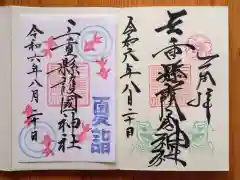 奉拝
三重縣護國神社
令和六年八月二十日
三重縣護國神社
令和六年八月二十日
夏詣